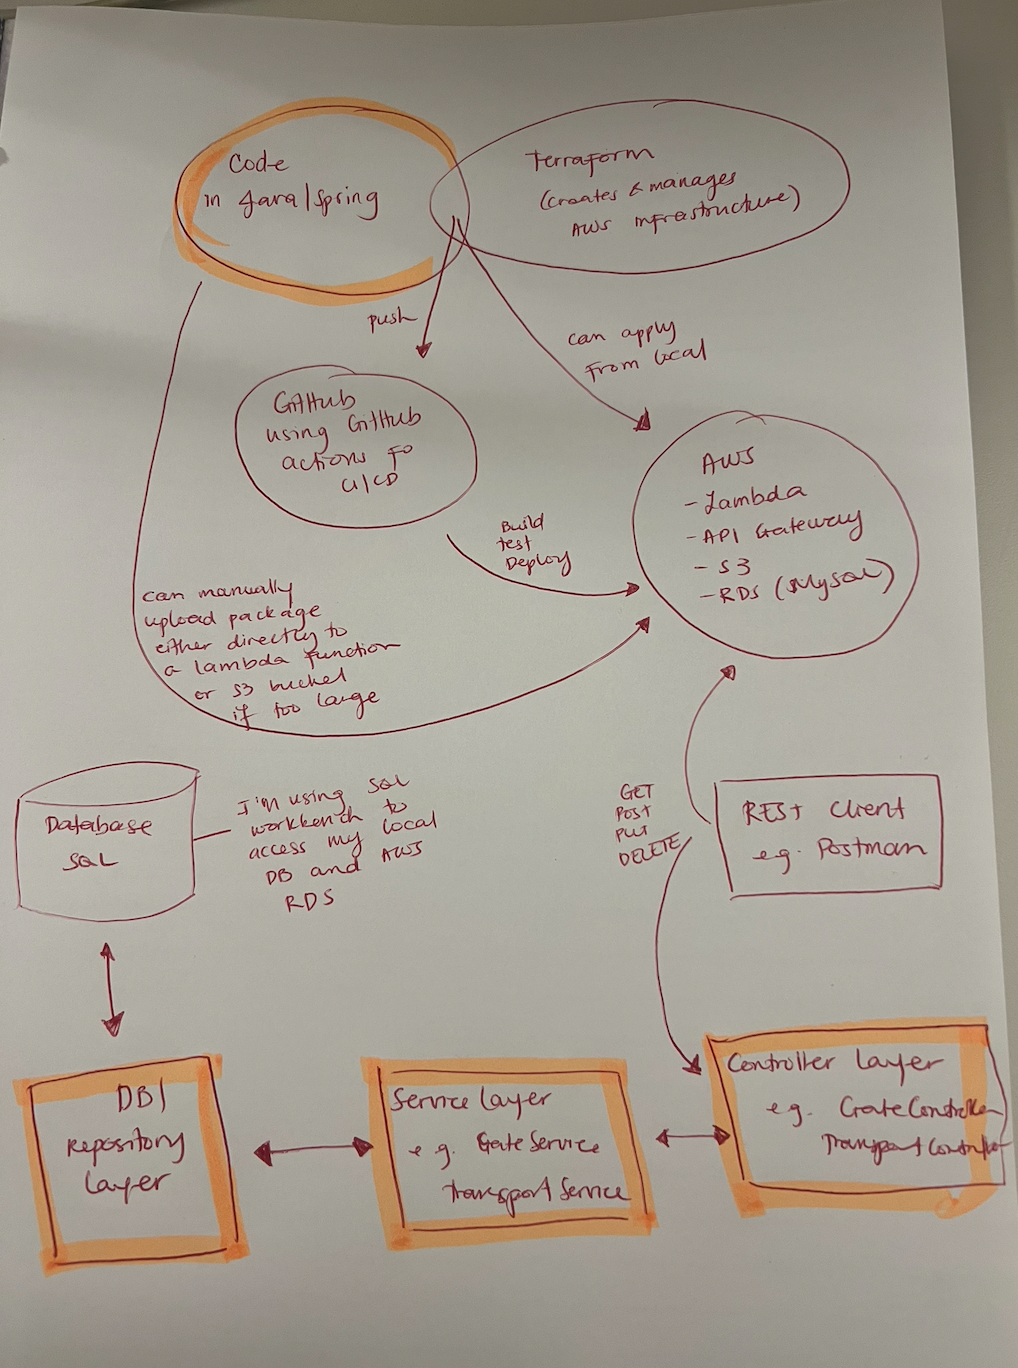 Code
in Java/Spring
Terraform
(creates & manages
AWS infrastructure)
push
can apply
from local
GitHub
using GitHub
actions to
CI/CD
AWS
- Lambda
- API Gateway
- S3
- RDS (MySQL)
Build
test
Deploy
can manually
upload package
either directly to
a lambda function
or S3 bucket
if too large
Database
SQL
I'm using SQL
workbench to
access my local
DB and AWS
RDS
GET
POST
PUT
DELETE
REST Client
e.g. Postman
DB/
Repository
Layer
Service Layer
e.g. GateService
TransportService
Controller Layer
e.g. GateController
TransportController